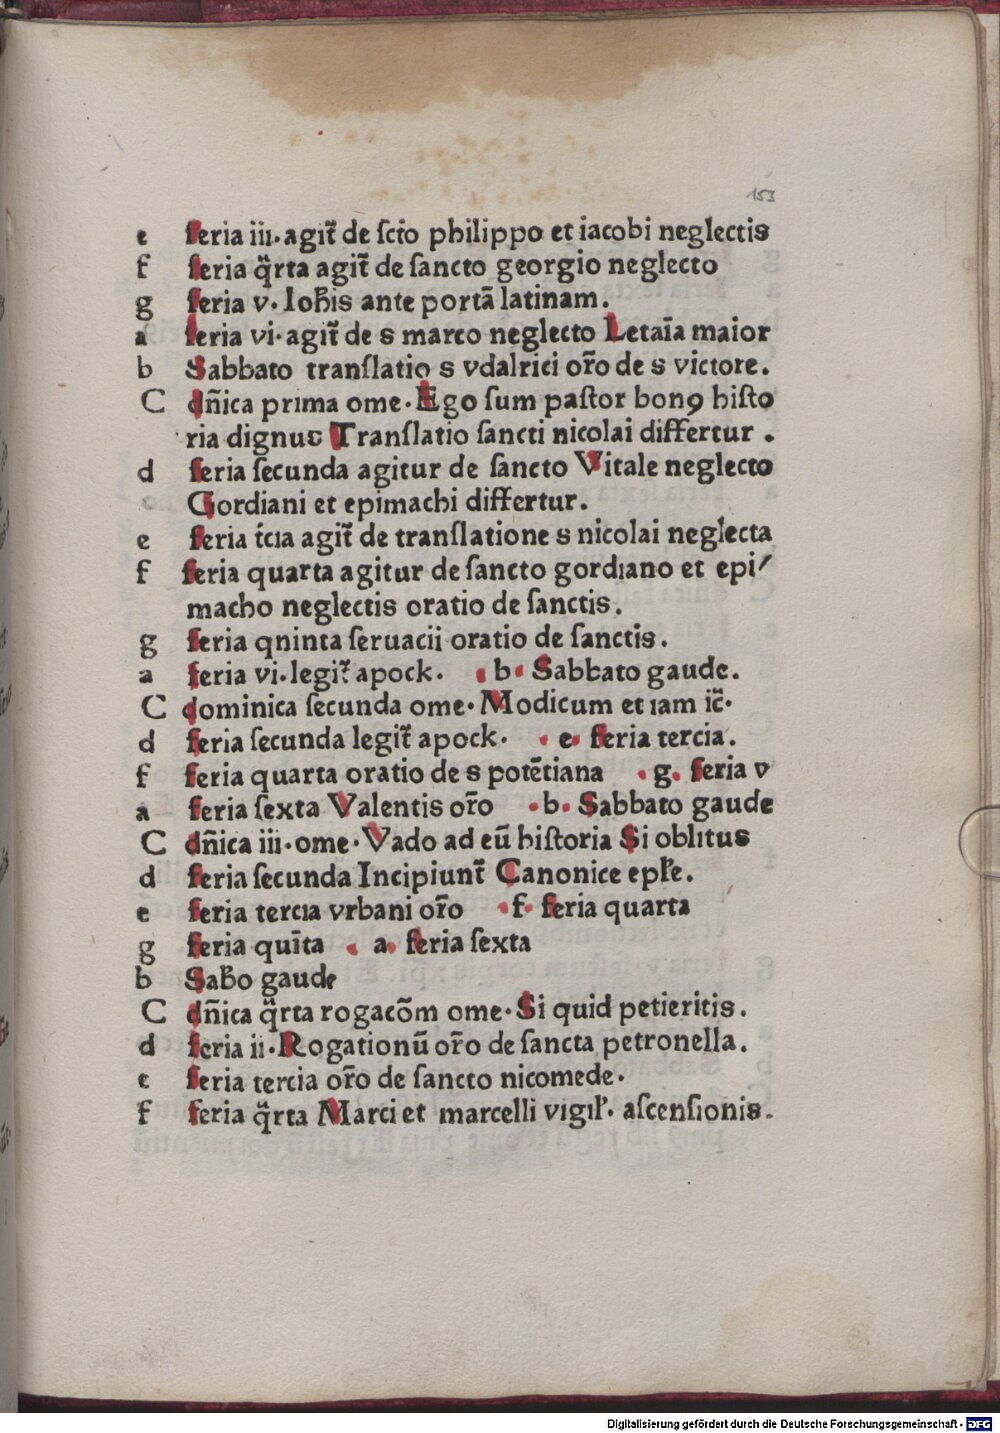 153
e feria iii. agit̃ de sct̃o philippo et iacobi neglectis
f feria q̃rta agit̃ de sancto georgio neglecto
g feria v. Ioh̃is ante portã latinam.
a feria vi. agit̃ de s marco neglecto Letaĩa maior
b Sabbato translatio s vdalrici or̃o de s victore.
C dñica prima ome. Ego sum pastor bonꝯ histo
ria dignus Translatio sancti nicolai differtur.
d feria secunda agitur de sancto Vitale neglecto
Gordiani et epimachi differtur.
e feria t̃cia agit̃ de translatione s nicolai neglecta
f feria quarta agitur de sancto gordiano et epi/
macho neglectis oratio de sanctis.
g feria qninta seruacii oratio de sanctis.
a feria vi. legit̃ apock. b. Sabbato gaude.
C dominica secunda ome. Modicum et iam ic̃.
d feria secunda legit̃ apock. e. feria tercia.
f feria quarta oratio de s potẽtiana .g. feria v
a feria sexta Valentis or̃o .b. Sabbato gaude
C dñica iii. ome. Vado ad eũ historia Si oblitus
d feria secunda Incipiunt̃ Canonice epl̃e.
e feria tercia vrbani or̃o .f. feria quarta
g feria quĩta . a. feria sexta
b Sab̃o gaude
C dñica q̃rta rogacõm ome. Si quid petieritis.
d feria ii. Rogationũ or̃o de sancta petronella.
e feria tercia or̃o de sancto nicomede.
f feria q̃rta Marci et marcelli vigil̃. ascensionis.
Digitalisierung gefördert durch die Deutsche Forschungsgemeinschaft - DFG